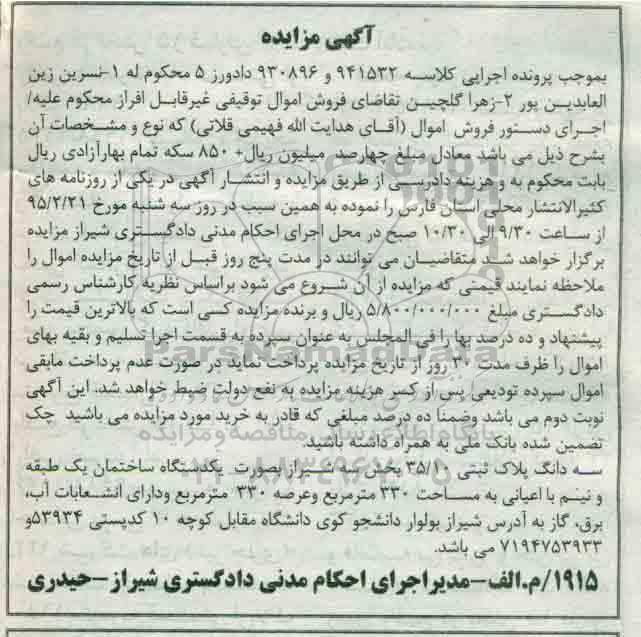 آگهی مزایده
بموجب پرونده اجرایی کلاسه ۹۴۱۵۳۲ و ۹۳۰۸۹۶ دادورز ۵ محکوم له ۱-نسرین زین
العابدین پور ۲-زهرا گلچین تقاضای فروش اموال توقیفی غیرقابل افراز محکوم علیه/
اجرای دستور فروش اموال (آقای هدایت الله فهیمی قلاتی) که نوع و مشخصات آن
بشرح ذیل می باشد معادل مبلغ چهارصد میلیون ریال+ ۸۵۰ سکه تمام بهارآزادی ریال
بابت محکوم به و هزینه دادرسی از طریق مزایده و انتشار آگهی در یکی از روزنامه های
کثیرالانتشار محلی استان فارس را نموده به همین سبب در روز سه شنبه مورخ ۹۵/۲/۲۱
از ساعت ۹/۳۰ الی ۱۰/۳۰ صبح در محل اجرای احکام مدنی دادگستری شیراز مزایده
برگزار خواهد شد متقاضیان می توانند در مدت پنج روز قبل از تاریخ مزایده اموال را
ملاحظه نمایند قیمتی که مزایده از آن شروع می شود براساس نظریه کارشناس رسمی
دادگستری مبلغ ۵/۸۰۰/۰۰۰/۰۰۰ ریال و برنده مزایده کسی است که بالاترین قیمت را
پیشنهاد و ده درصد بها را فی المجلس به عنوان سپرده به قسمت اجرا تسلیم و بقیه بهای
اموال را ظرف مدت ۳۰ روز از تاریخ مزایده پرداخت نماید در صورت عدم پرداخت مابقی
اموال سپرده تودیعی پس از کسر هزینه مزایده به نفع دولت ضبط خواهد شد. این آگهی
نوبت دوم می باشد وضمنا ده درصد مبلغی که قادر به خرید مورد مزایده می باشید چک
تضمین شده بانک ملی به همراه داشته باشید.
سه دانگ پلاک ثبتی ۳۵/۱۰ بخش سه شیراز بصورت یکدستگاه ساختمان یک طبقه
و نیم با اعیانی به مساحت ۳۳۰ مترمربع وعرصه ۳۳۰ مترمربع ودارای انشعابات آب،
برق، گاز به آدرس شیراز بولوار دانشجو کوی دانشگاه مقابل کوچه ۱۰ کدپستی ۵۳۹۳۴و
۷۱۹۴۷۵۳۹۳۳ می باشد.
۱۹۱۵/م.الف-مدیراجرای احکام مدنی دادگستری شیراز-حیدری
ParsNamadData